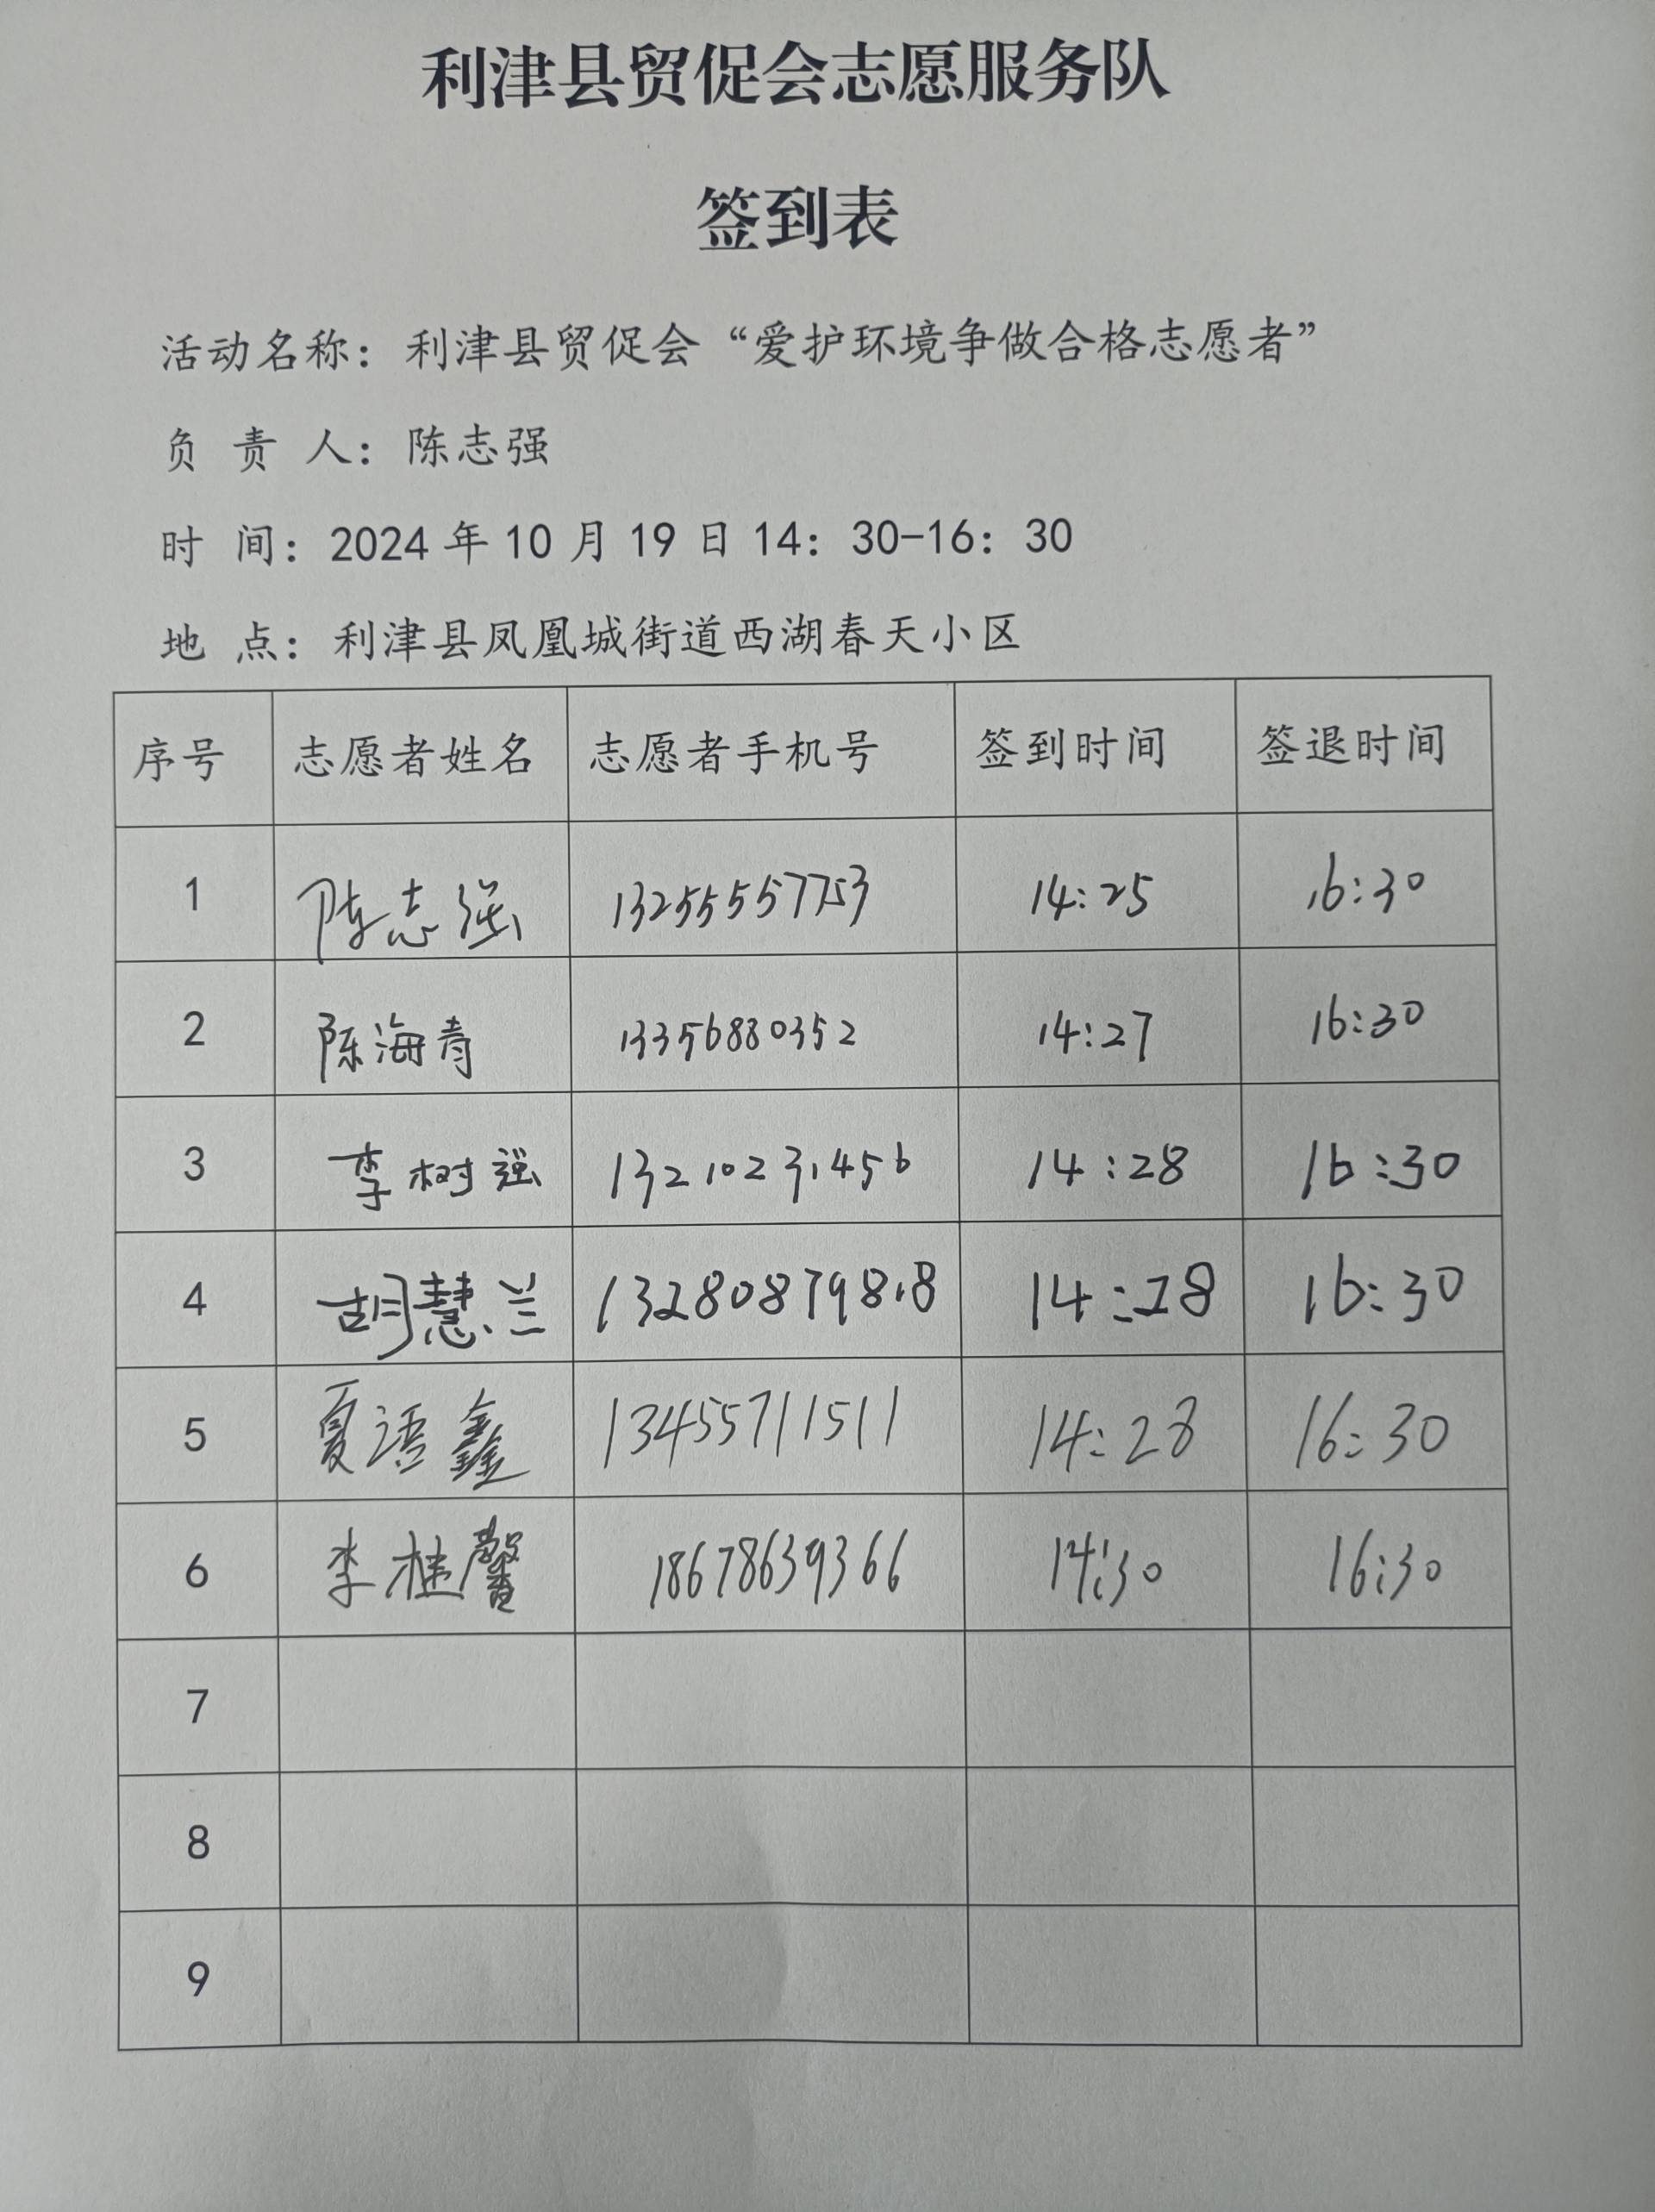 利津县贸促会志愿服务队
签到表
活动名称：利津县贸促会“爱护环境争做合格志愿者”
负 责 人：陈志强
时 间：2024 年 10 月 19 日 14：30-16：30
地 点：利津县凤凰城街道西湖春天小区
序号 志愿者姓名 志愿者手机号 签到时间 签退时间
1 陈志强 13255557753 14:25 16:30
2 陈海青 13356880352 14:27 16:30
3 李树强 13210231456 14:28 16:30
4 胡慧兰 13280879818 14:28 16:30
5 夏语鑫 13455711511 14:28 16:30
6 李桂馨 18678639366 14:30 16:30
7
8
9